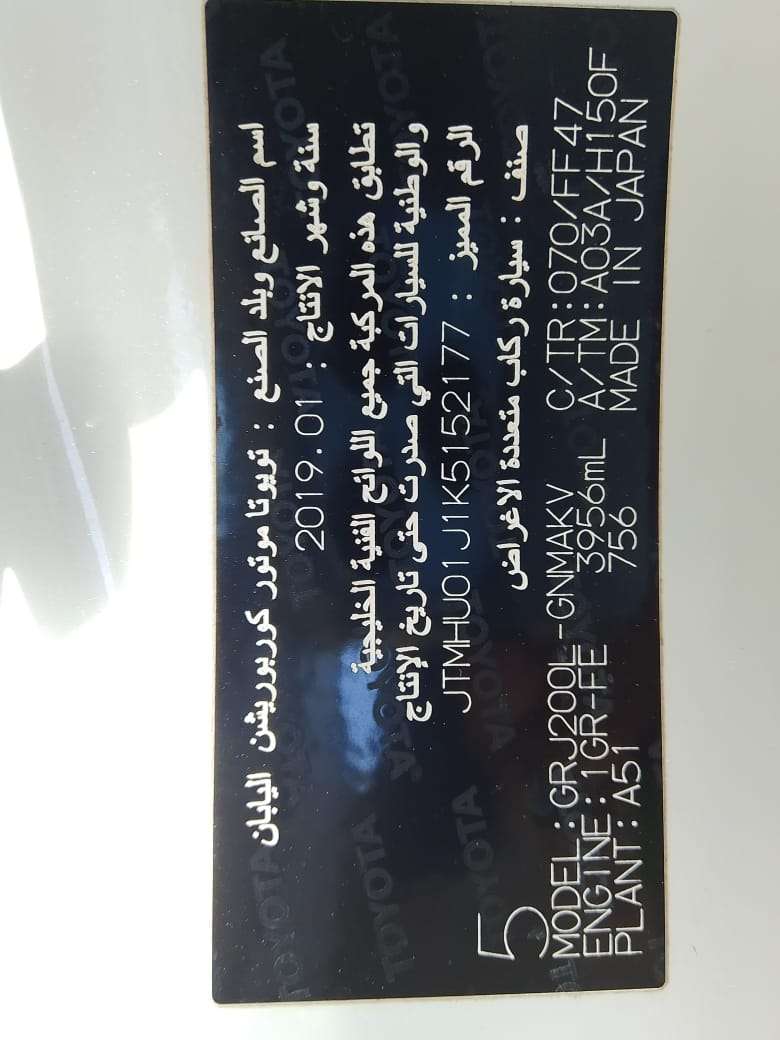 اسم الصانع وبلد الصنع : تويوتا موتور كوربوريشن اليابان
سنة وشهر الانتاج : 2019.01
تطابق هذه المركبة جميع اللوائح الفنية الخليجية
والوطنية للسيارات التي صدرت حتى تاريخ الإنتاج
الرقم المميز : JTMHU01J1K5152177
صنف : سيارة ركاب متعددة الاغراض
5
MODEL : GRJ200L-GNMAKV C/TR : 070/FF47
ENGINE : 1GR-FE 3956mL A/TM : A03A/H150F
PLANT : A51 756 MADE IN JAPAN